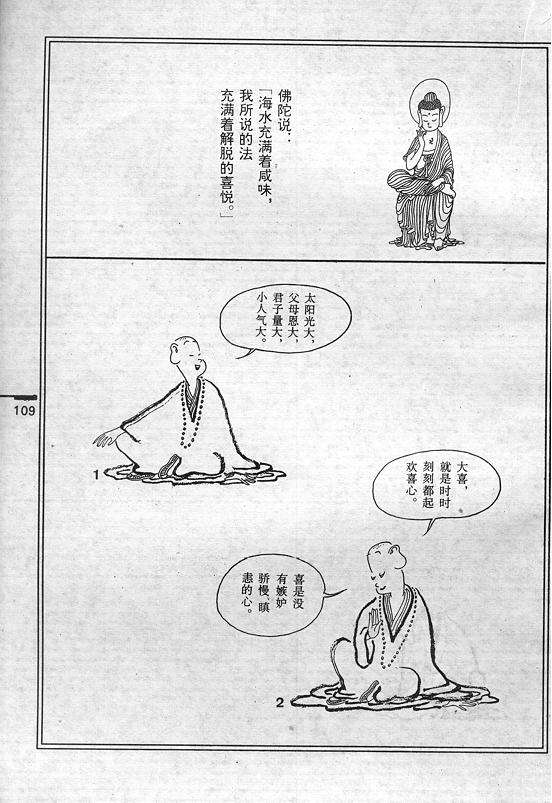 佛陀说：
「海水充满着咸味，
我所说的法
充满着解脱的喜悦。」
太阳光大，
父母恩大，
君子量大，
小人气大。
1
109
大喜，
就是时时
刻刻都起
欢喜心。
喜是没
有嫉妒
骄慢、瞋
恚的心。
2